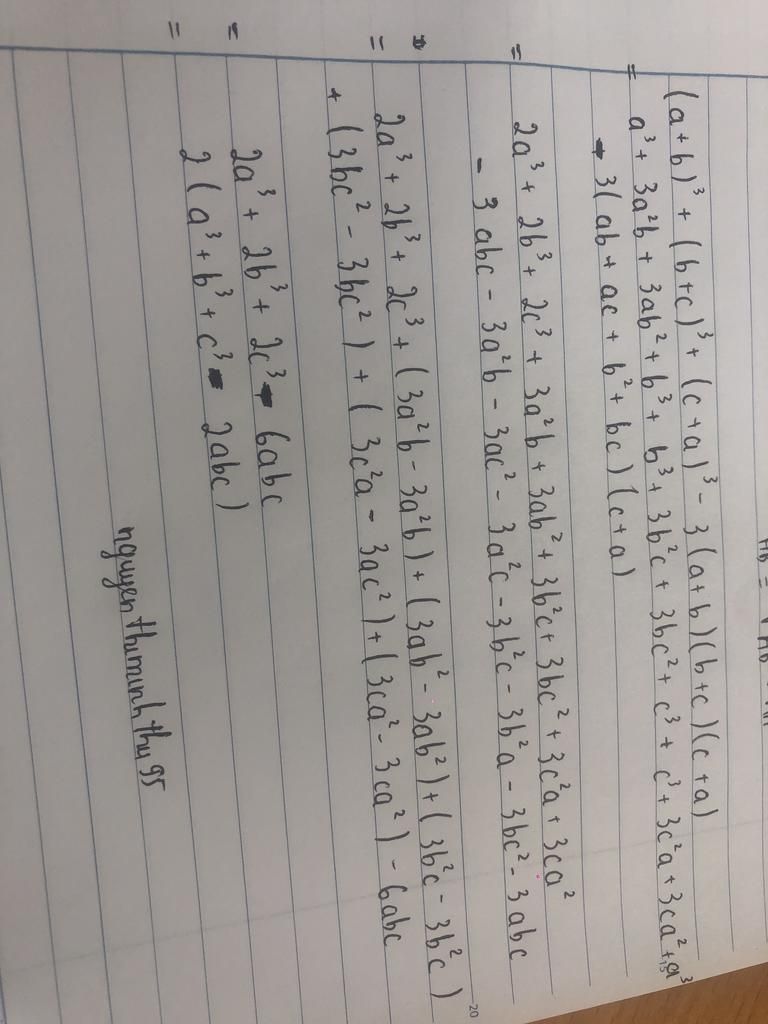 (a+b)³ + (b+c)³ + (c+a)³ - 3(a+b)(b+c)(c+a)
= a³ + 3a²b + 3ab² + b³ + b³ + 3b²c + 3bc² + c³ + c³ + 3c²a + 3ca² + a³
- 3(ab + ac + b² + bc)(c+a)
= 2a³ + 2b³ + 2c³ + 3a²b + 3ab² + 3b²c + 3bc² + 3c²a + 3ca²
- 3abc - 3a²b - 3ac² - 3a²c - 3b²c - 3b²a - 3bc² - 3abc
= 2a³ + 2b³ + 2c³ + (3a²b - 3a²b) + (3ab² - 3ab²) + (3b²c - 3b²c)
+ (3bc² - 3bc²) + (3c²a - 3ac²) + (3ca² - 3ca²) - 6abc
= 2a³ + 2b³ + 2c³ - 6abc
= 2(a³ + b³ + c³ - 2abc)
nguyenthiminhthu95
20
15